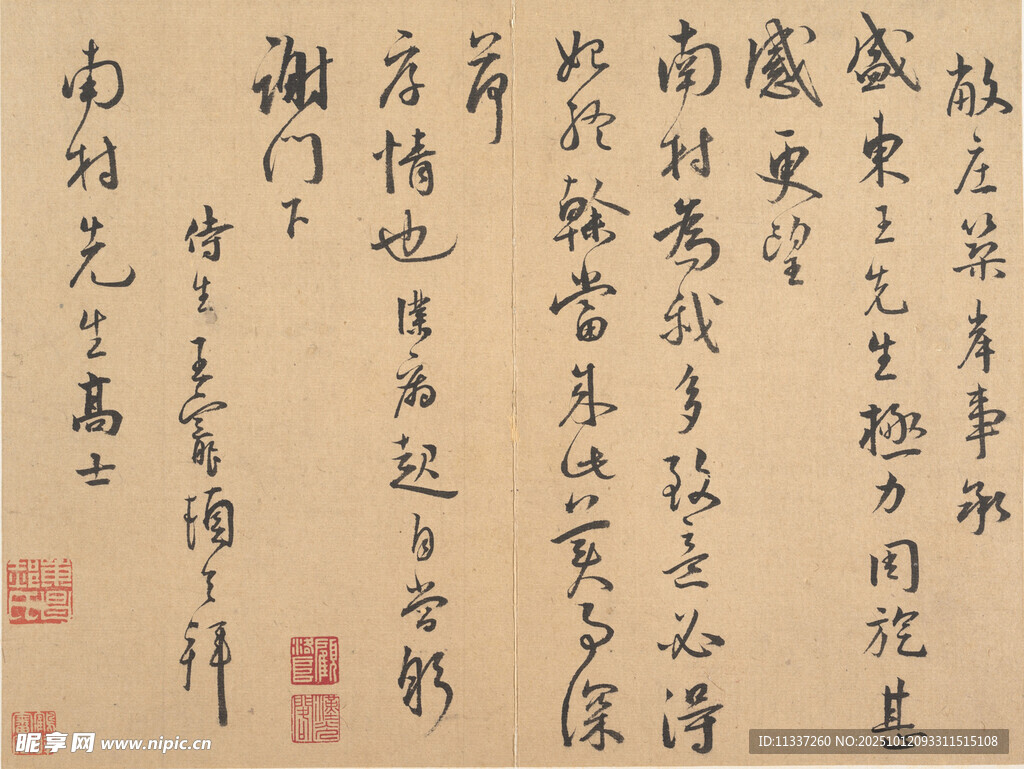 敝庄築岸事承
盛東王先生極力周旋甚
感更望
南村為我多致意必得
始終幹當成此美事深
荷
厚情也僕病起自當躬
謝門下
侍生王寵頓首拜
南村先生高士
顧洛阜
漢光閣
昵享网 www.nipic.cn
ID:11337260 NO:20251012093311515108